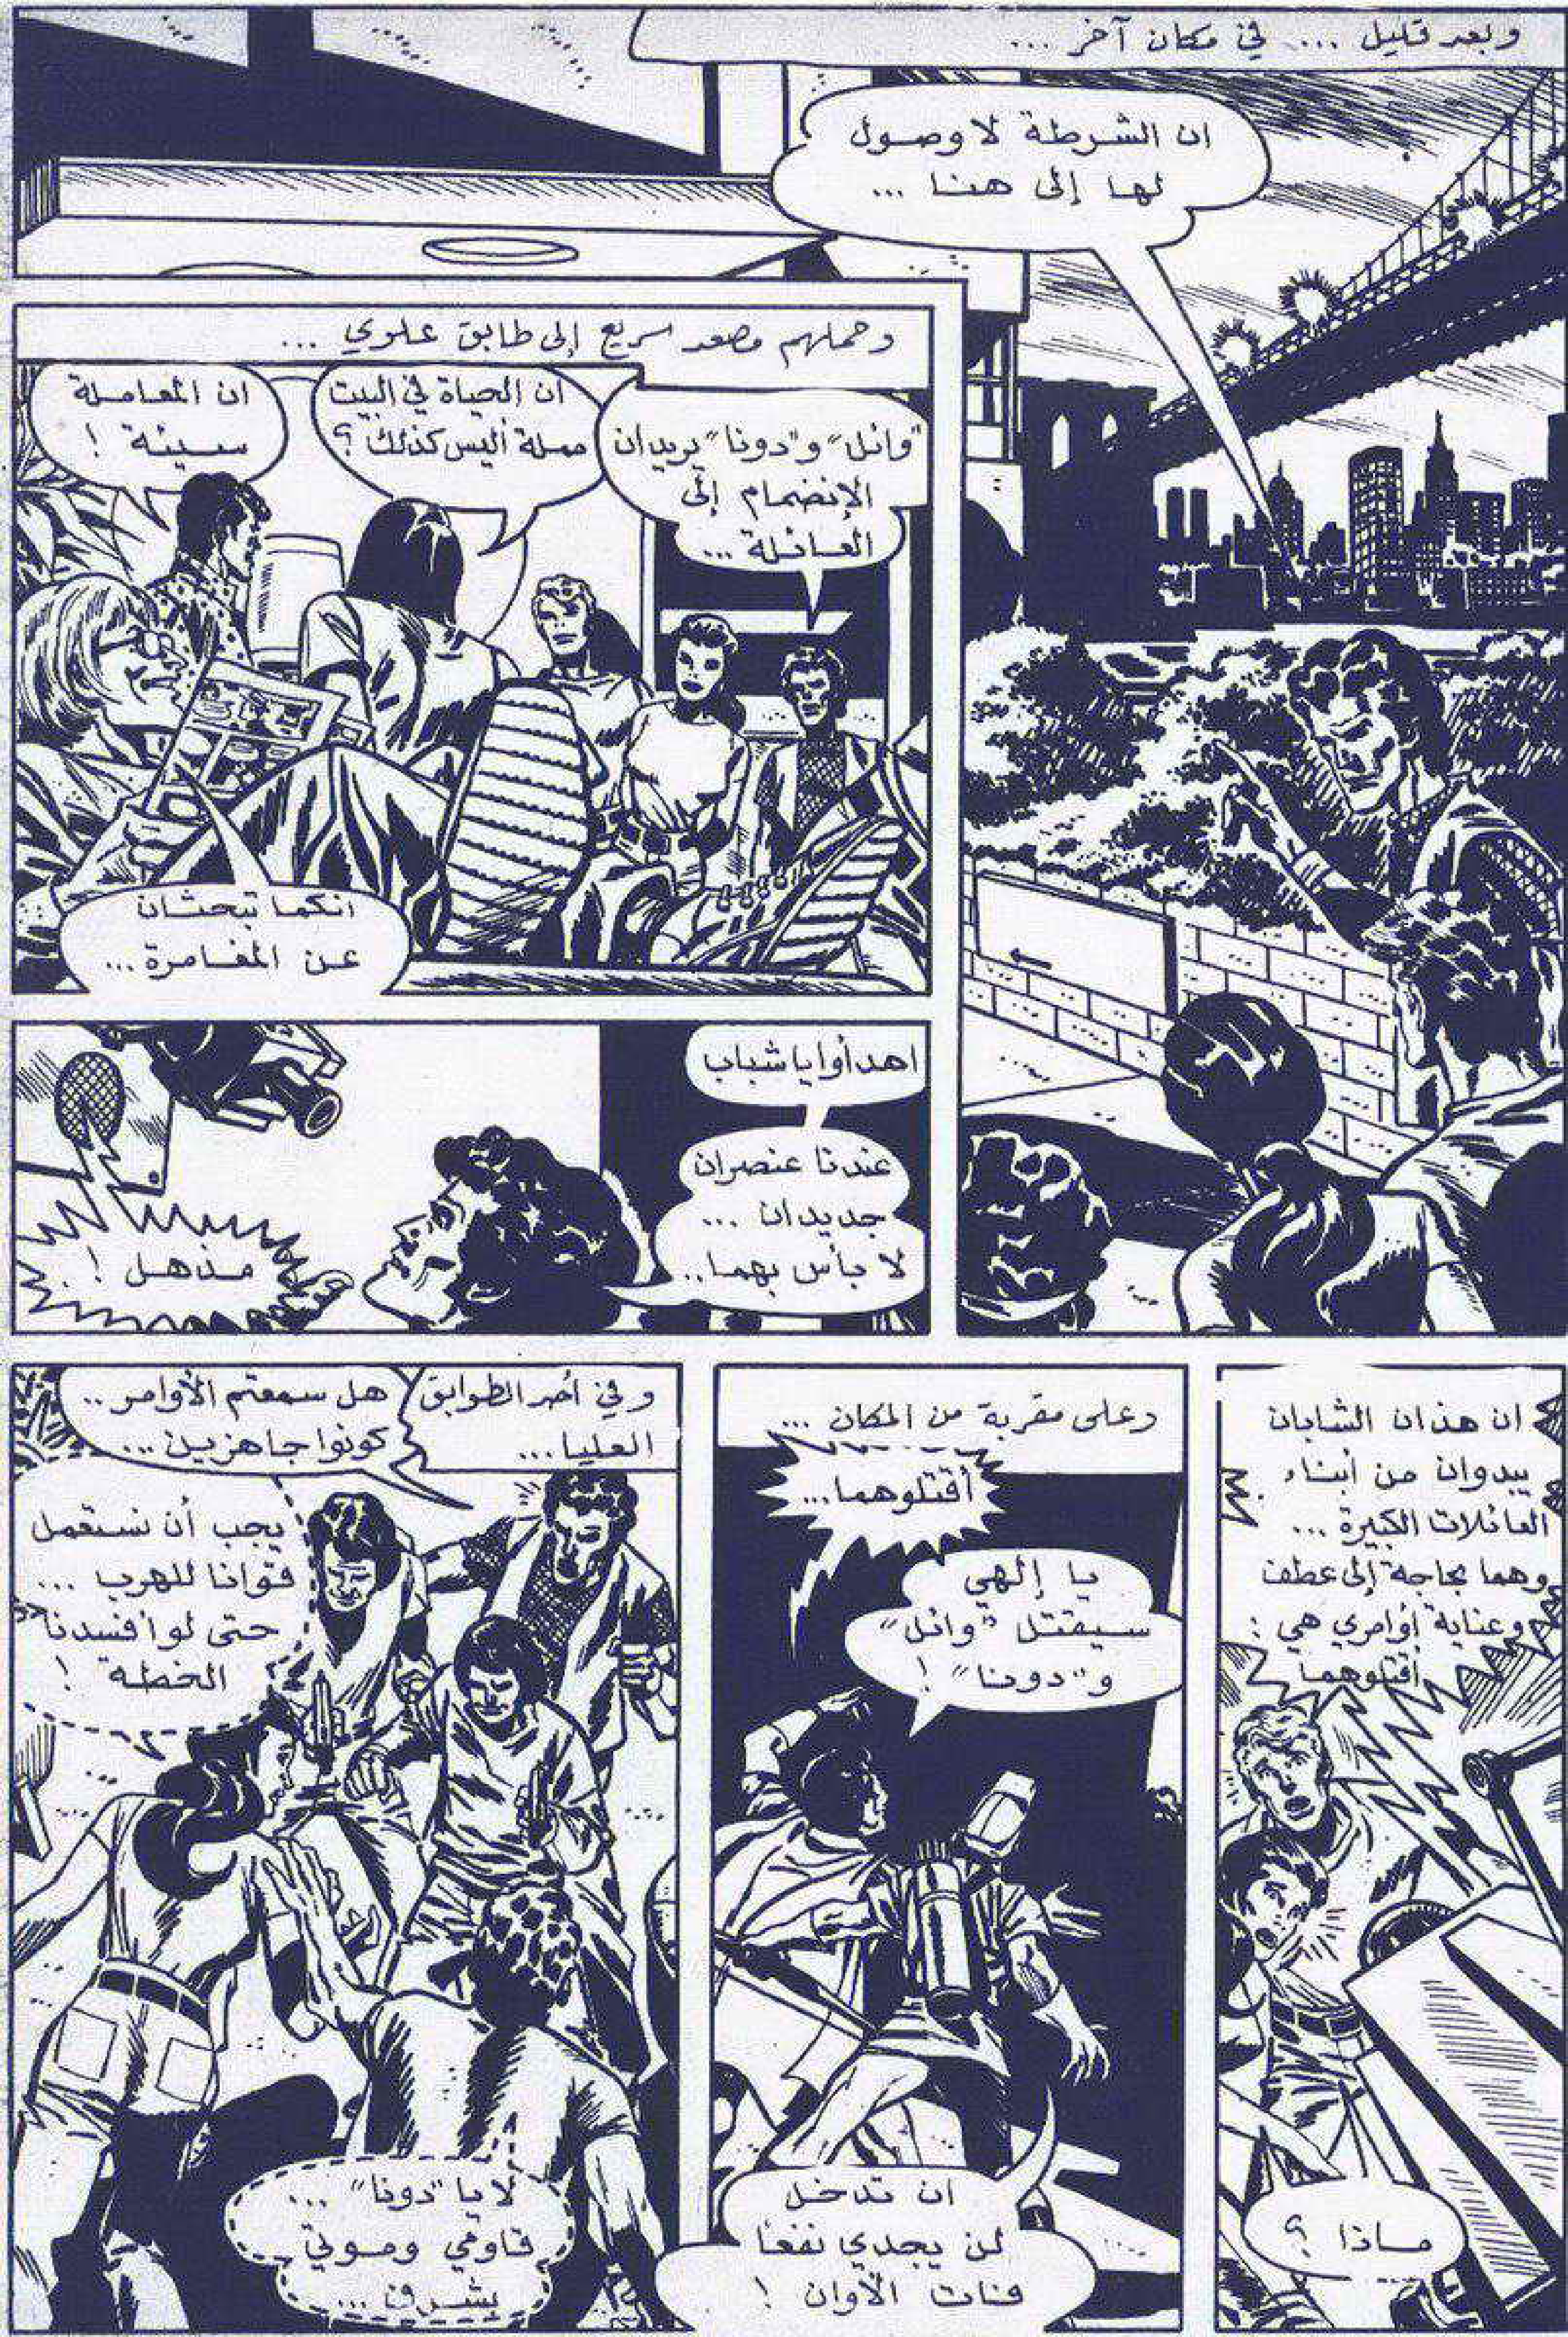 وبعد قليل ... في مكان آخر ...
ان الشرطة لا وصول
لها إلى هنا ...
وحملهم مصعد سريع إلى طابق علوي ...
"وائل" و"دونا" يريدان
الإنضمام إلى
العائلة ...
ان الحياة في البيت
مملة أليس كذلك ؟
ان المعاملة
سيئة !
انكما تبحثان
عن المغامرة ...
اهدأوا يا شباب
عندنا عنصران
جديدان ...
لا بأس بهما ..
مذهل !
ان هذان الشابان
يبدوان من أبناء
العائلات الكبيرة ...
وهما بحاجة إلى عطف
وعناية أوامري هي :
أقتلوهما
ماذا ؟
وعلى مقربة من المكان ...
أقتلوهما ...
يا إلهي
سيقتل "وائل"
و"دونا" !
ان تدخل
لن يجدي نفعاً
فات الأوان !
وفي أحد الطوابق
العليا ...
هل سمعتم الأوامر ..
كونوا جاهزين ...
يجب أن نستعمل
قوانا للهرب ...
حتى لو افسدنا
الخطة !
لا يا "دونا" ...
قاومي وموتي
بشرف ...